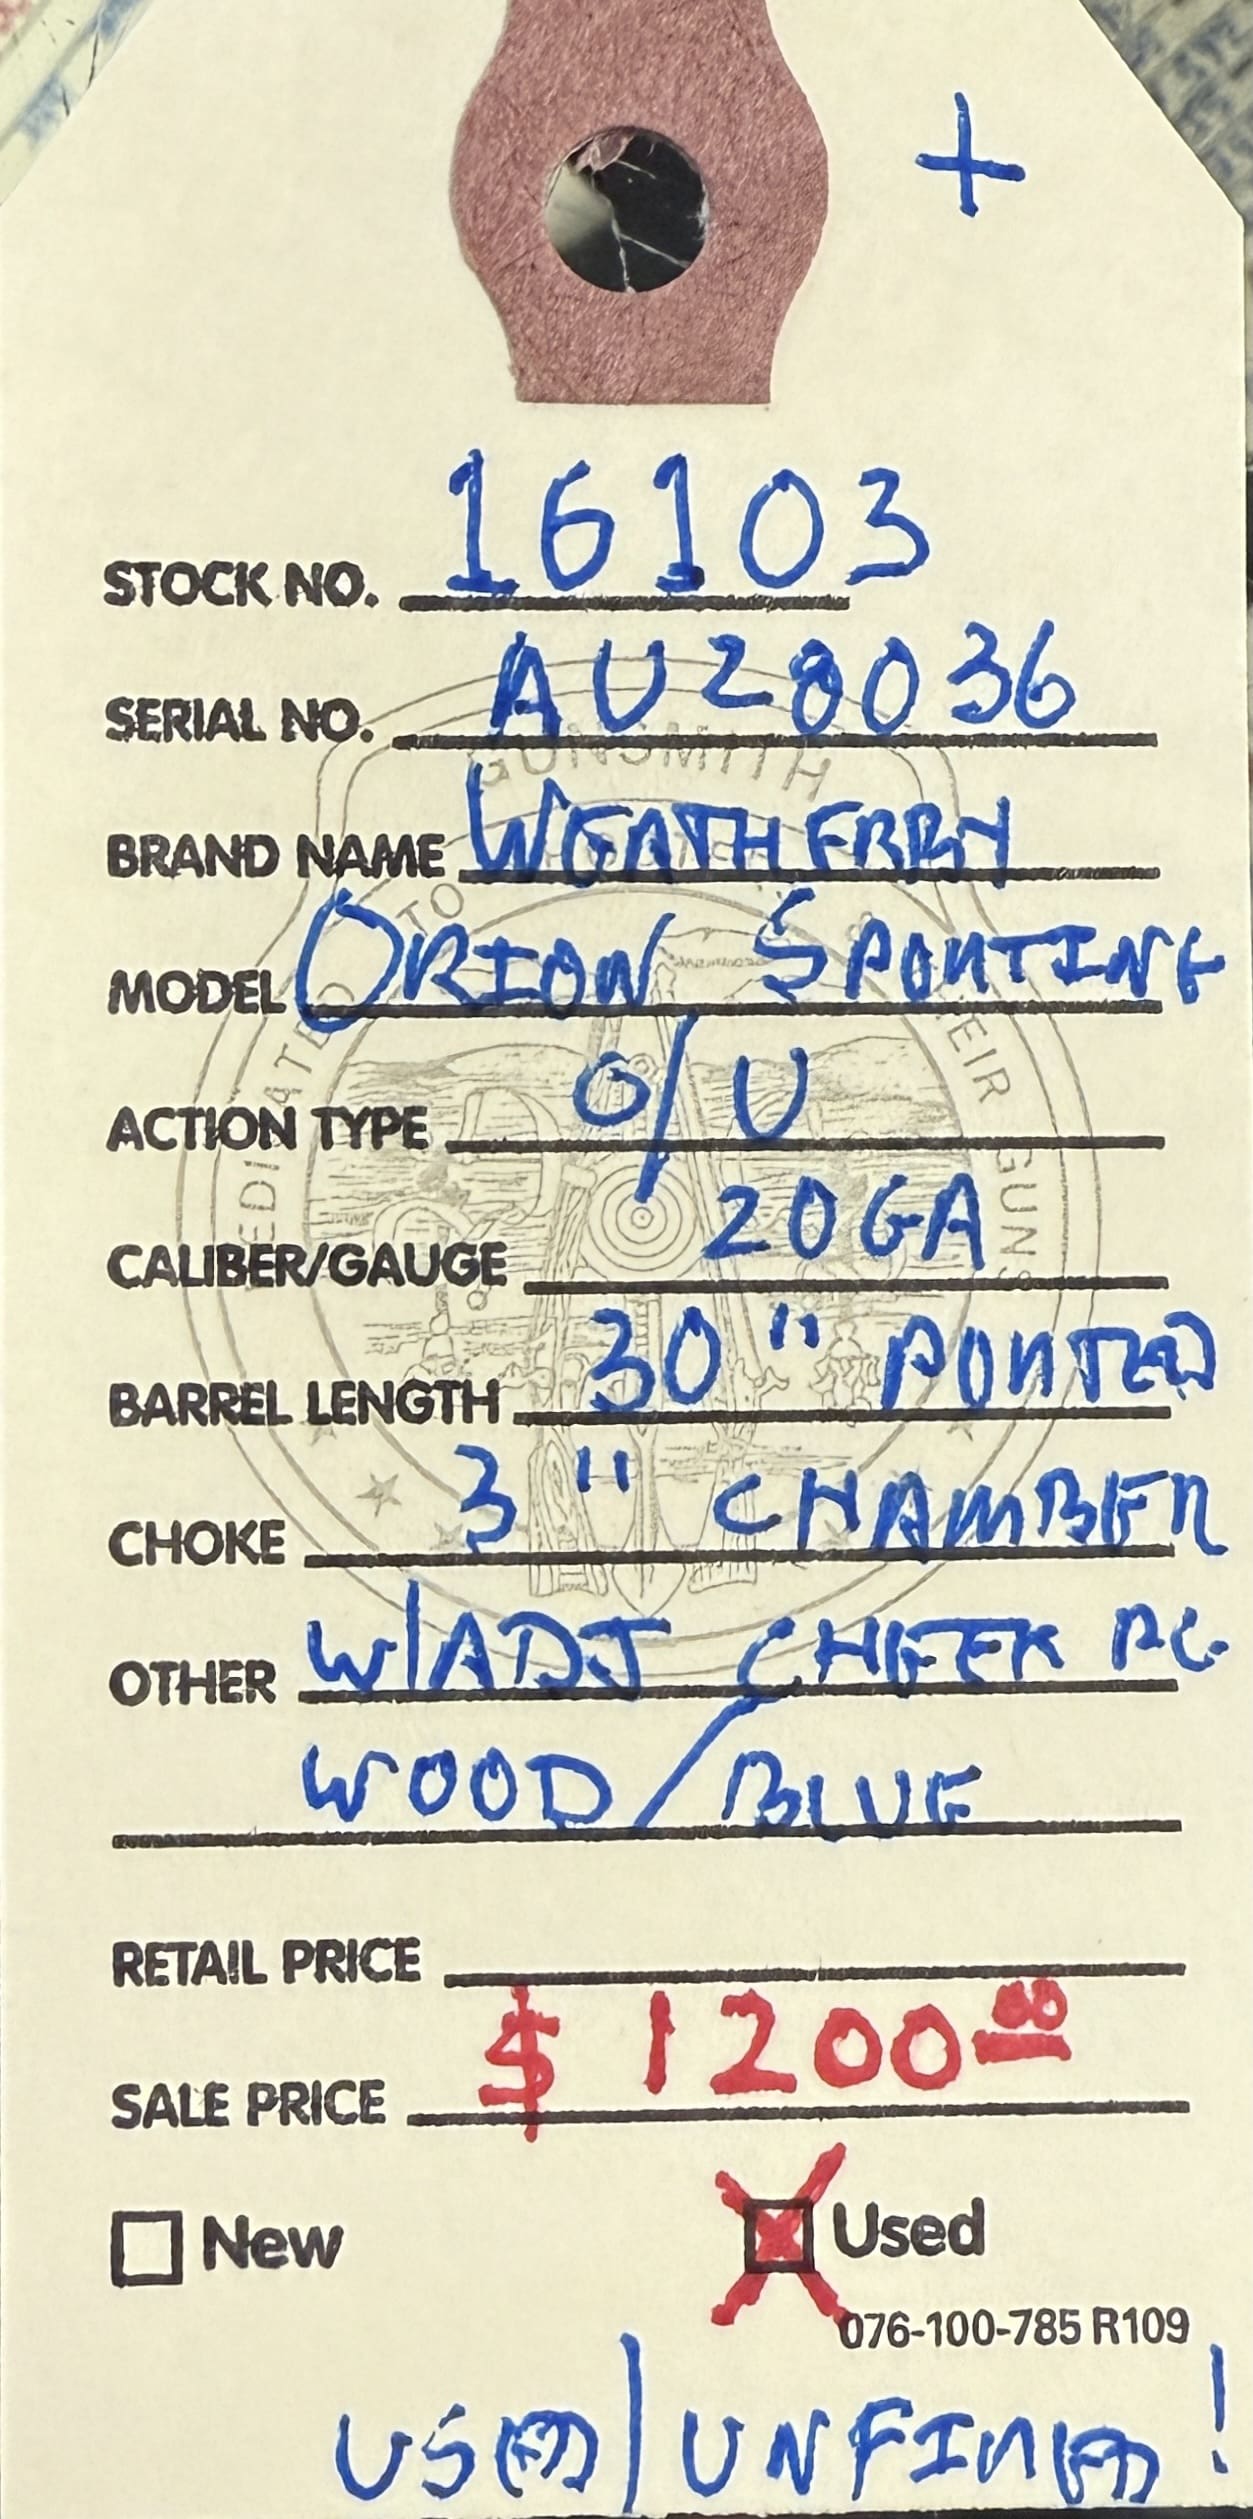 +
STOCK NO. 16103
SERIAL NO. AU28036
BRAND NAME WEATHERBY
MODEL ORION SPORTING
ACTION TYPE O/U
CALIBER/GAUGE 20GA
BARREL LENGTH 30" PORTED
CHOKE 3" CHAMBER
OTHER W/ADJ CHEEK PC
WOOD/BLUE
RETAIL PRICE
SALE PRICE $1200.00
New Used
076-100-785 R109
USED/UNFIRED!
GUNSMITH
TO
DEDICATED
THEIR GUNS